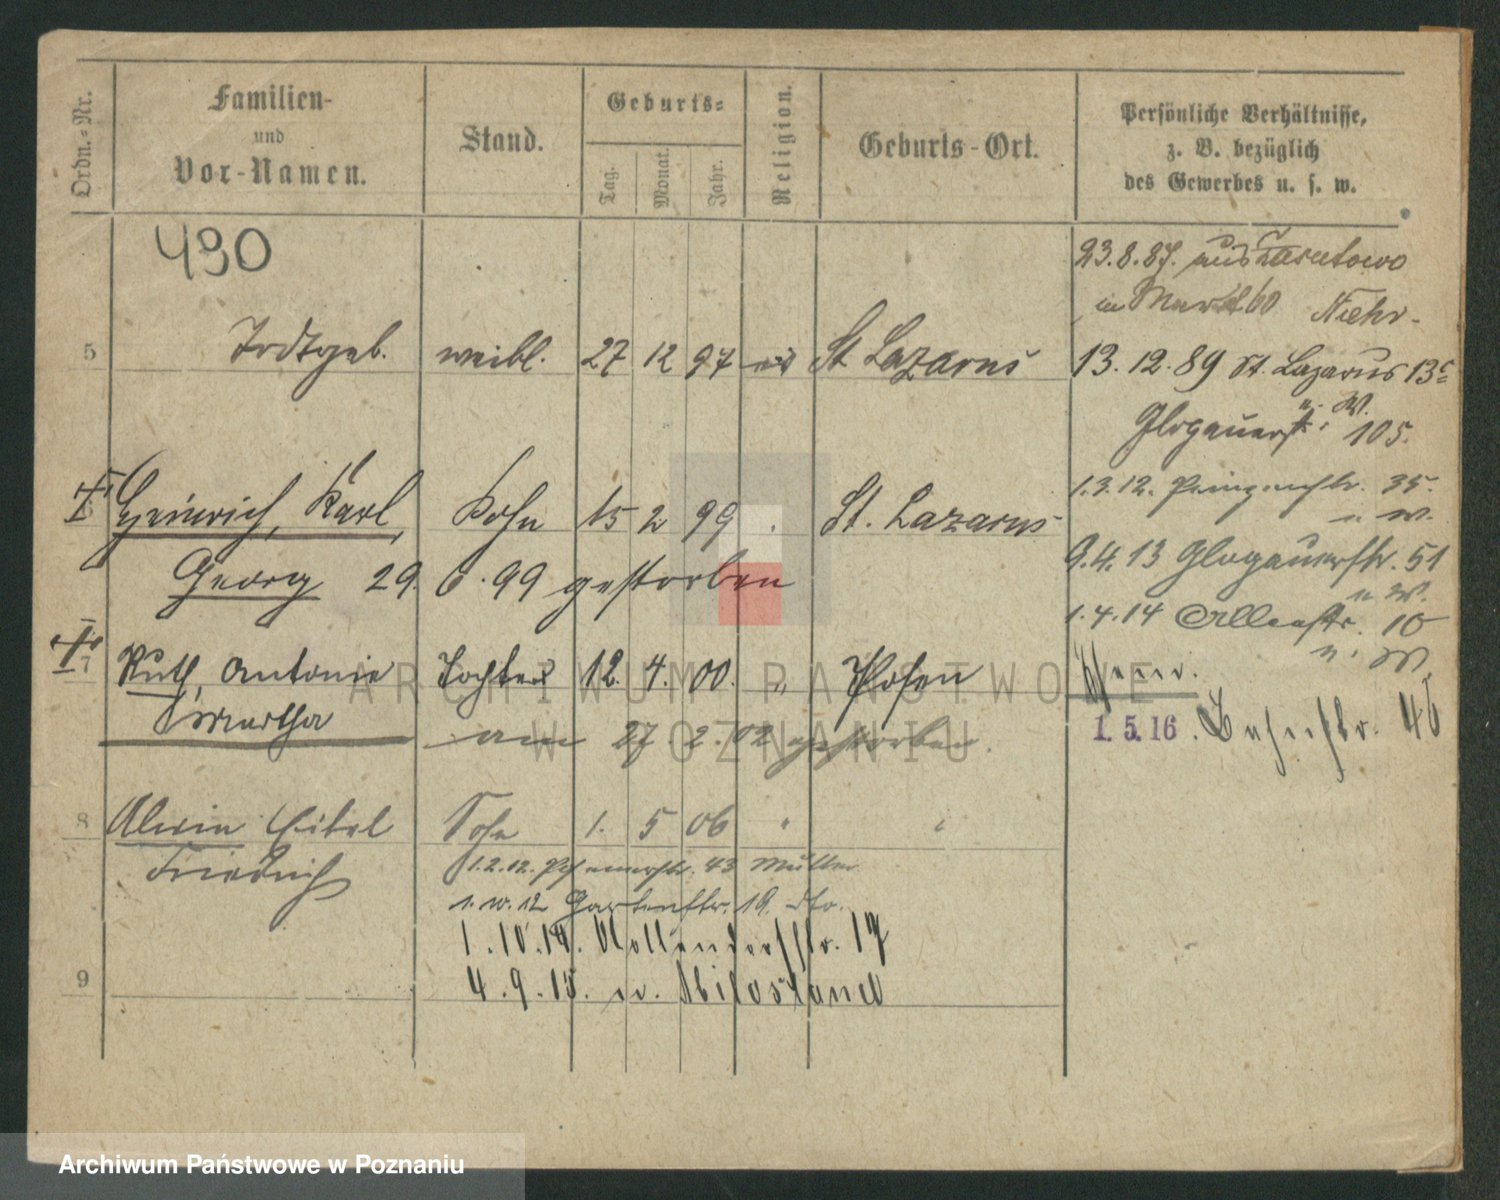 Ordn.-Nr.
Familien-
und
Vor-Namen.
Stand.
Geburts-
Tag.
Monat.
Jahr.
Religion.
Geburts-Ort.
Persönliche Verhältnisse,
z. B. bezüglich
des Gewerbes u. s. w.
490
23.8.87. aus
in Markt 60
5 Todtgeb. weibl. 27 12 97 St Lazarus
13.12.89 St. Lazarus 13c
u. W.
Glogauerstr. 105.
1.3.12. 35.
u. W.
6 Heinrich, Karl, Sohn 15 2 99 St. Lazarus
Georg 29. 6. 99 gestorben
9.4.13 Glogauerstr. 51
u. W.
1.4.14 10
u. W.
7 Ruth, Antonie Tochter 12. 4. 00. " Posen
Martha
am 27. 2. 02 gestorben.
1.5.16. Bahnstr. 46
8 Alwin Eitel Sohn 1. 5 06 " "
Friedrich
1.2.12. 43 Müller
12 Gartenstr. 19. dto.
1.10.14. Nollendorfstr. 17
9 4.9.15. n. Miloslaw
ARCHIWUM PAŃSTWOWE
W POZNANIU
Archiwum Państwowe w Poznaniu